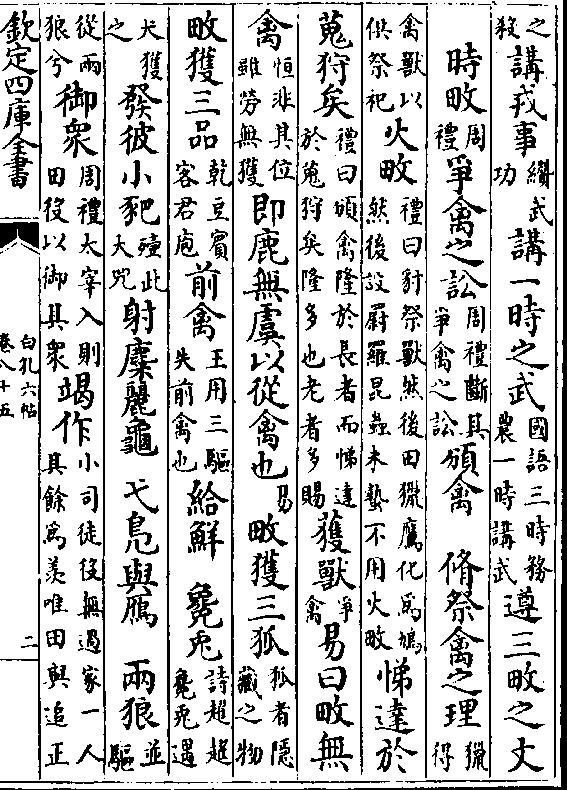 之殺講戎事纘武功講一時之武國語三時務農一時講武遵三畋之丈
時畋周禮爭禽之訟周禮斷其爭禽之訟頒禽 脩祭禽之理獵得
禽獸以供祭祀火畋禮曰豺祭獸然後田獵鷹化為鳩然後設罻羅昆蟲未蟄不用火畋悌達於
蒐狩矣禮曰頒禽隆於長者而悌達於蒐狩矣隆多也老者多賜獲獸爭禽易曰畋無
禽恒非其位雖勞無獲即鹿無虞以從禽也易畋獲三狐狐者隱藏之物
畋獲三品乾豆賓客君庖前禽王用三驅失前禽也給鮮 毚兎詩趯趯毚兎遇
犬獲之發彼小豝殪此大兕射麋麗龜 弋鳧與鴈 兩狼並驅
從兩狼兮御衆周禮太宰入則田役以御其衆竭作小司徒役無過家一人其餘為羨唯田與追正
欽定四庫全書
白孔六帖
卷八十五
二